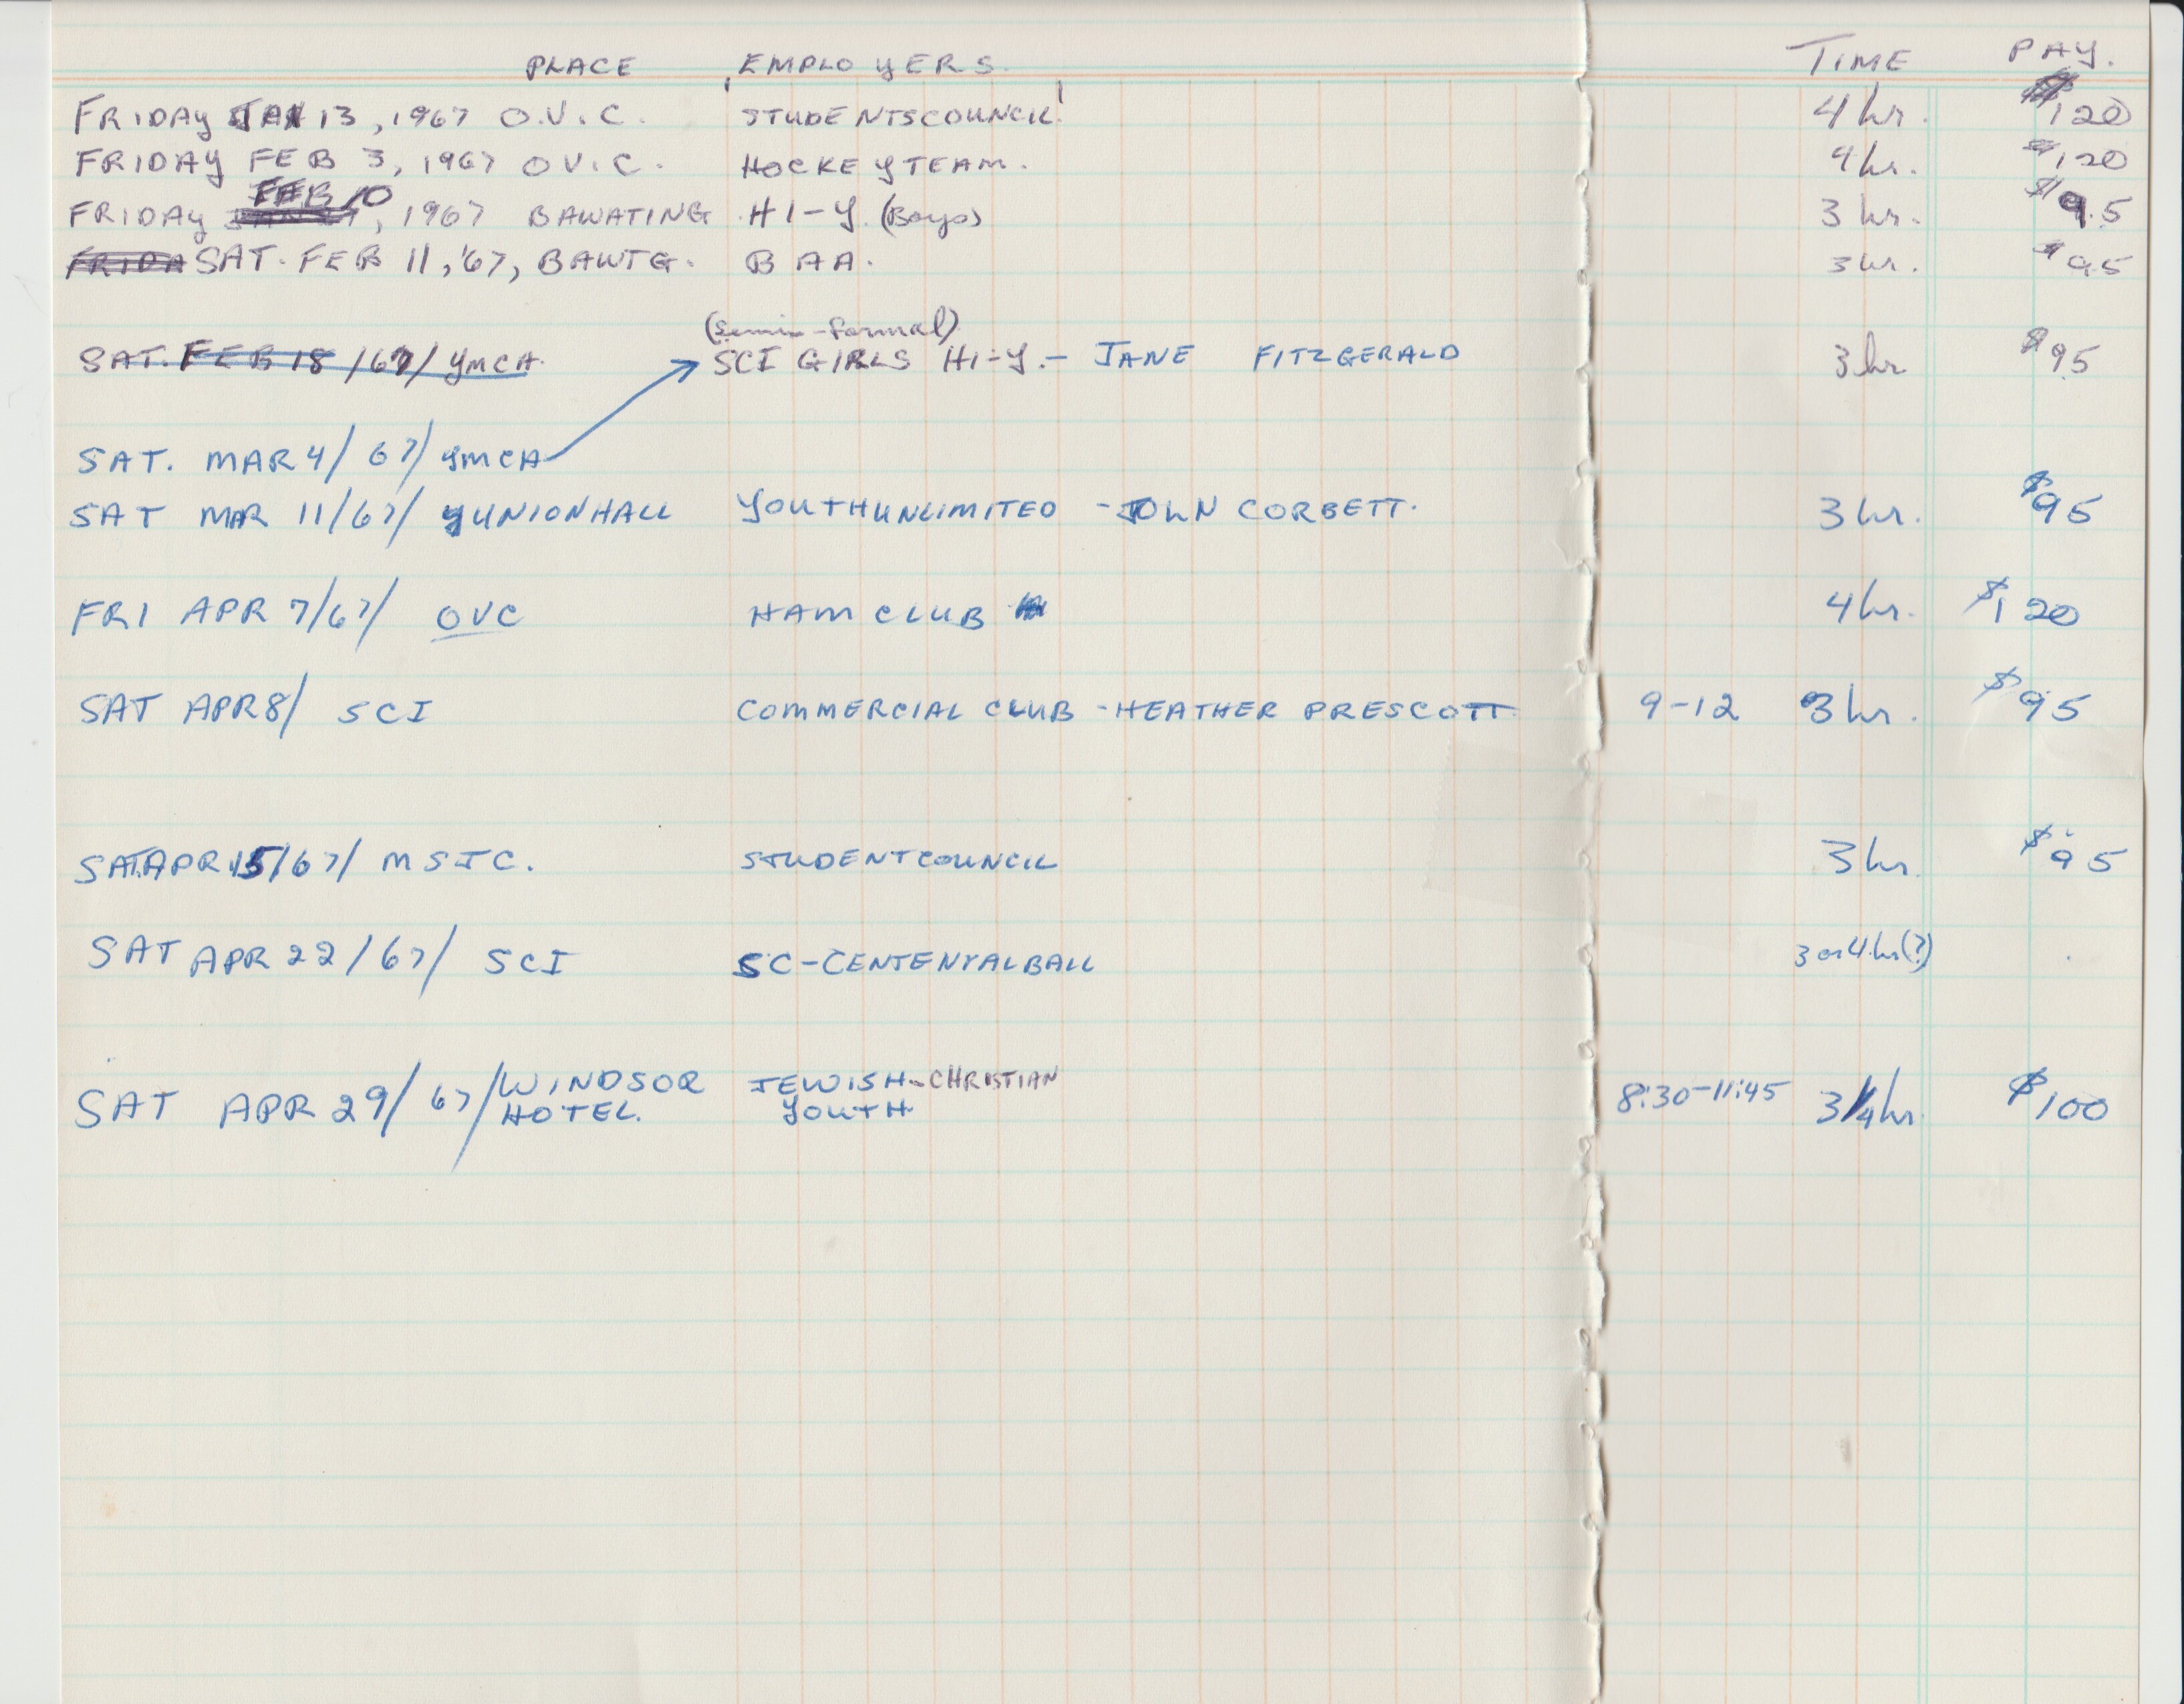 PLACE EMPLOYERS. TIME PAY.
FRIDAY JAN 13, 1967 O.V.C. STUDENTSCOUNCIL 4 hr. $120
FRIDAY FEB 3, 1967 O.V.C. HOCKEY TEAM. 4 hr. $120
FEB 10
FRIDAY , 1967 BAWATING HI-Y. (Boys) 3 hr. $95
FRIDA SAT. FEB 11, '67, BAWTG. BAA. 3 hr. $95
(Semi-formal)
SAT. FEB 18/67/ YMCA. SCI GIRLS HI-Y. - JANE FITZGERALD 3 hr $95
SAT. MAR 4/67/ YMCA
SAT MAR 11/67/ UNIONHALL YOUTHUNLIMITED - JOHN CORBETT. 3 hr. $95
FRI APR 7/67/ OVC HAM CLUB 4 hr. $120
SAT APR 8/ SCI COMMERCIAL CLUB - HEATHER PRESCOTT 9-12 3 hr. $95
SAT.APR 15/67/ MSJC. STUDENTCOUNCIL 3 hr. $95
SAT APR 22/67/ SCI SC-CENTENYALBALL 3 or 4 hr(?)
SAT APR 29/67/ WINDSOR JEWISH-CHRISTIAN 8:30-11:45 3 1/4 hr. $100
HOTEL. YOUTH